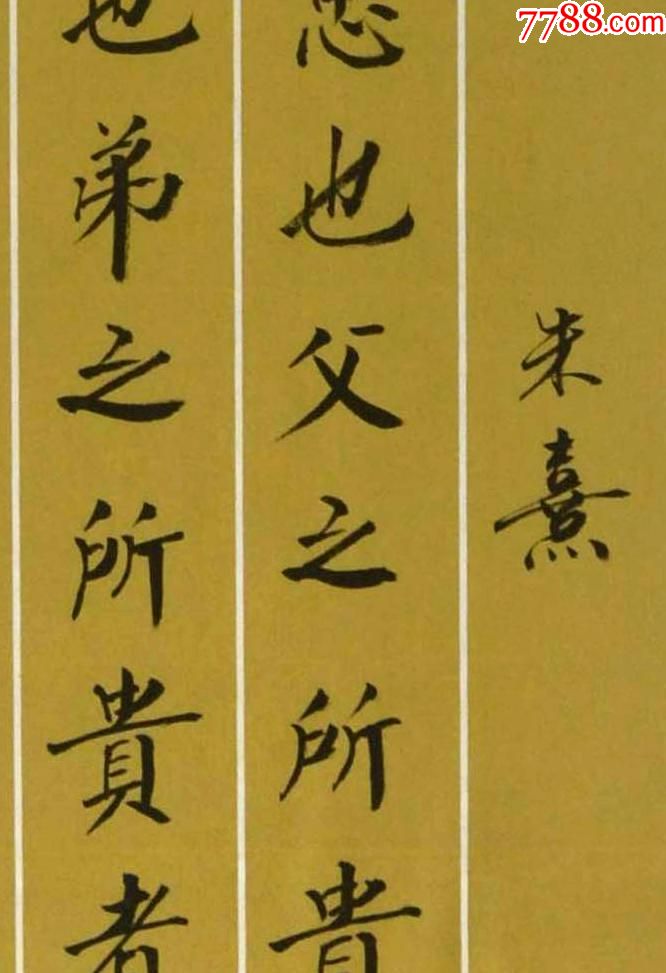 7788.com
朱熹
忠也父之所貴
也弟之所貴者